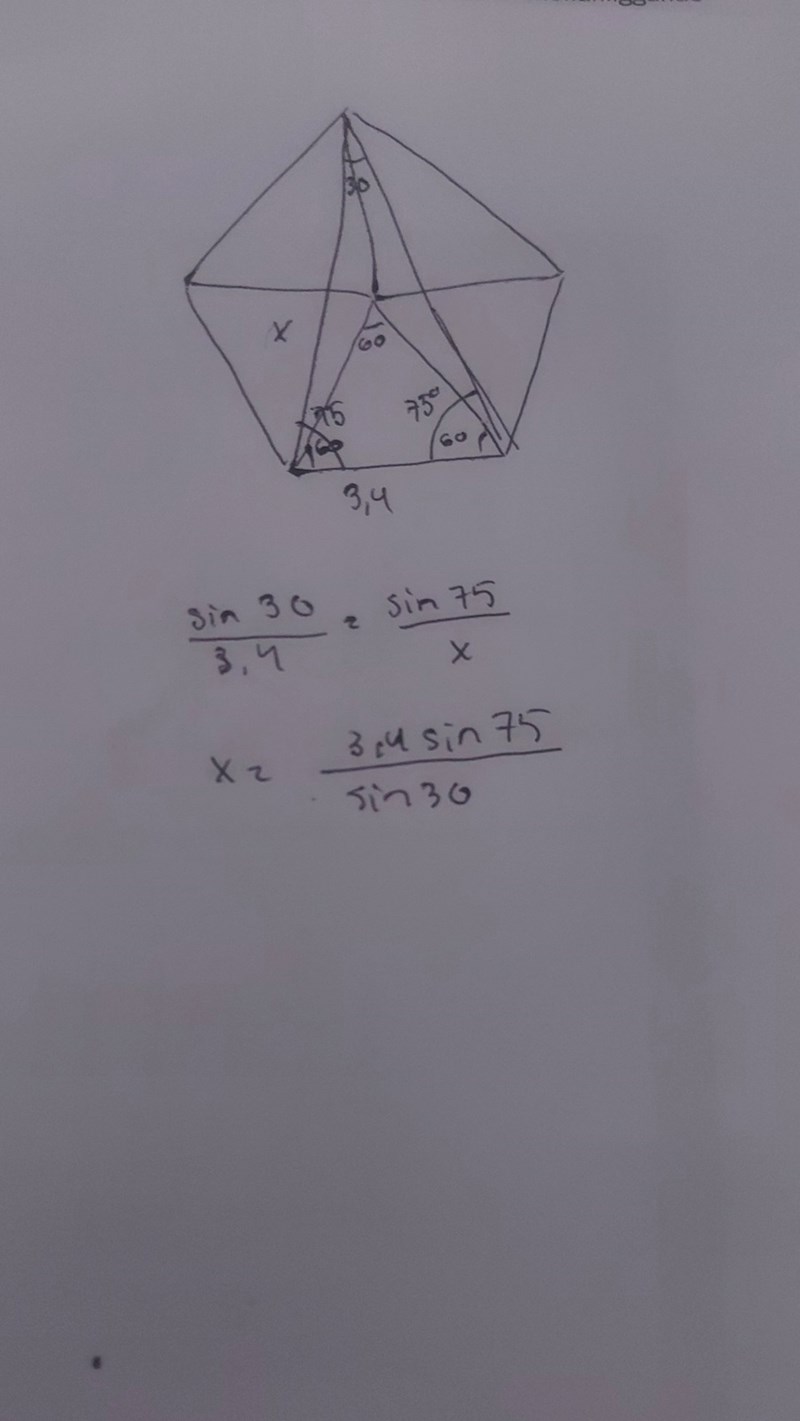 30
x
60
75
75°
60
60
3,4
sin 30 / 3,4 = sin 75 / x
x = 3,4 sin 75 / sin 30